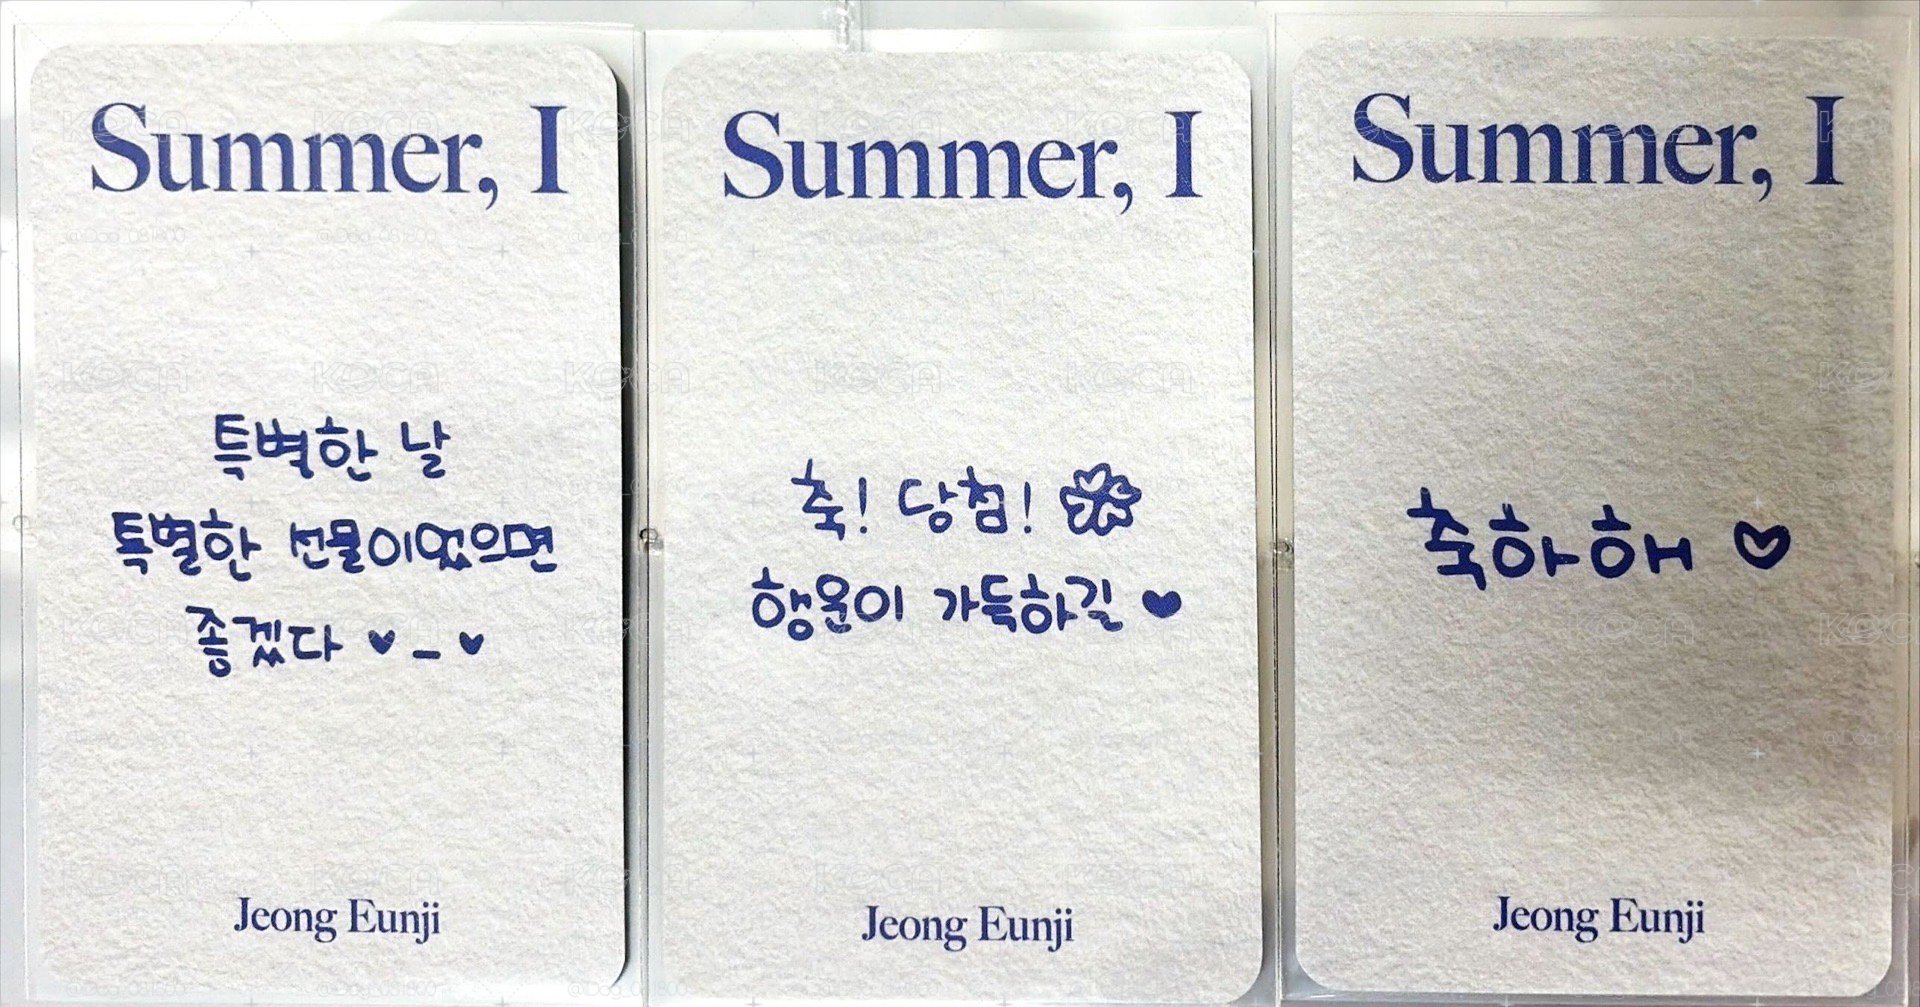 Summer, I
특별한 날
특별한 선물이었으면
좋겠다 ♥_♥
Jeong Eunji
Summer, I
축! 당첨! 🍀
행운이 가득하길 ♥
Jeong Eunji
Summer, I
축하해 ♡
Jeong Eunji
KOCA